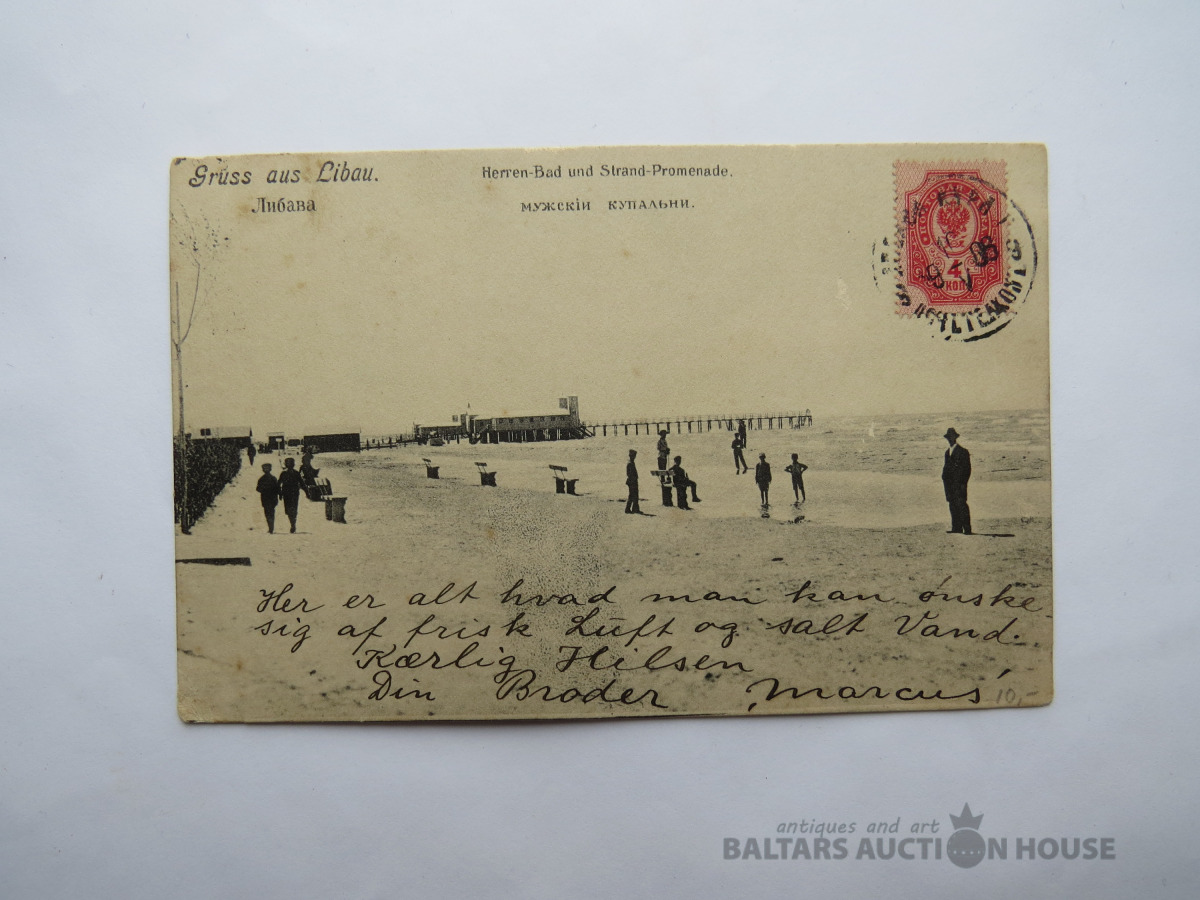 Grüss aus Libau.
Herren-Bad und Strand-Promenade.
Либава
МУЖСКІИ КУПАЛЬНИ.
4
КОП
06
V
Her er alt hvad man kan ønske
sig af frisk Luft og salt Vand.
Kærlig Hilsen
Din Broder Marcus
10,-
antiques and art
BALTARS AUCTION HOUSE